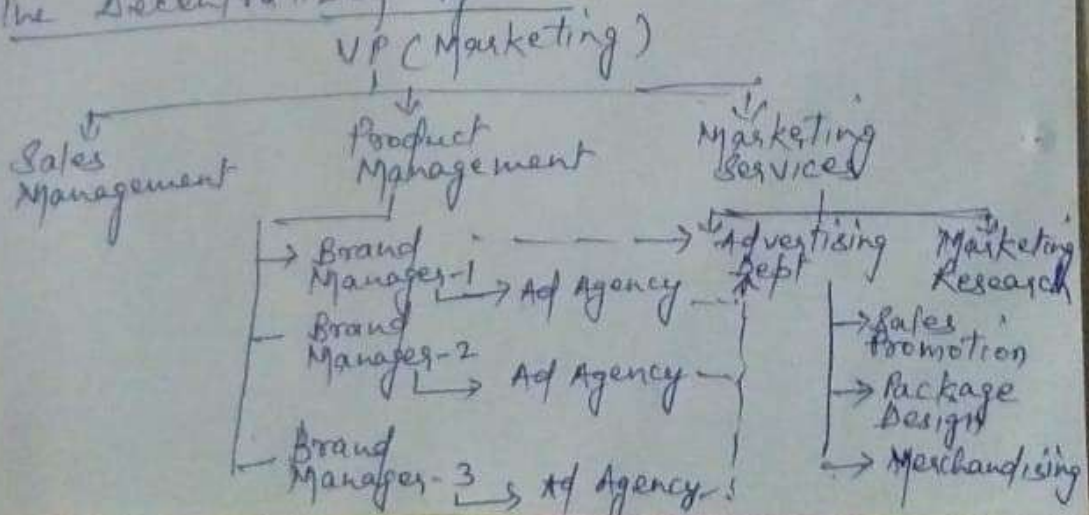 The
VP (Marketing)
Sales
Management
Product
Management
Marketing
Services
Brand
Manager-1
Ad Agency
Brand
Manager-2
Ad Agency
Brand
Manager-3
Ad Agency
Advertising
Dept
Marketing
Research
Sales
Promotion
Package
Design
Merchandising